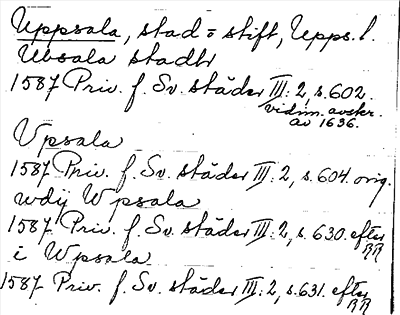 Uppsala, stad o stift, Upps. l.
Ubsala stadtz
1587 Priv. f. Sv. städer III: 2, s. 602.
vidim. avskr.
av 1636.
Vpsala
1587 Priv. f. Sv. städer III: 2, s. 604. orig.
wdij Wpsala
1587 Priv. f. Sv. städer III: 2, s. 630. efter
RR
i Wpsala
1587 Priv. f. Sv. städer III: 2, s. 631. efter
RR